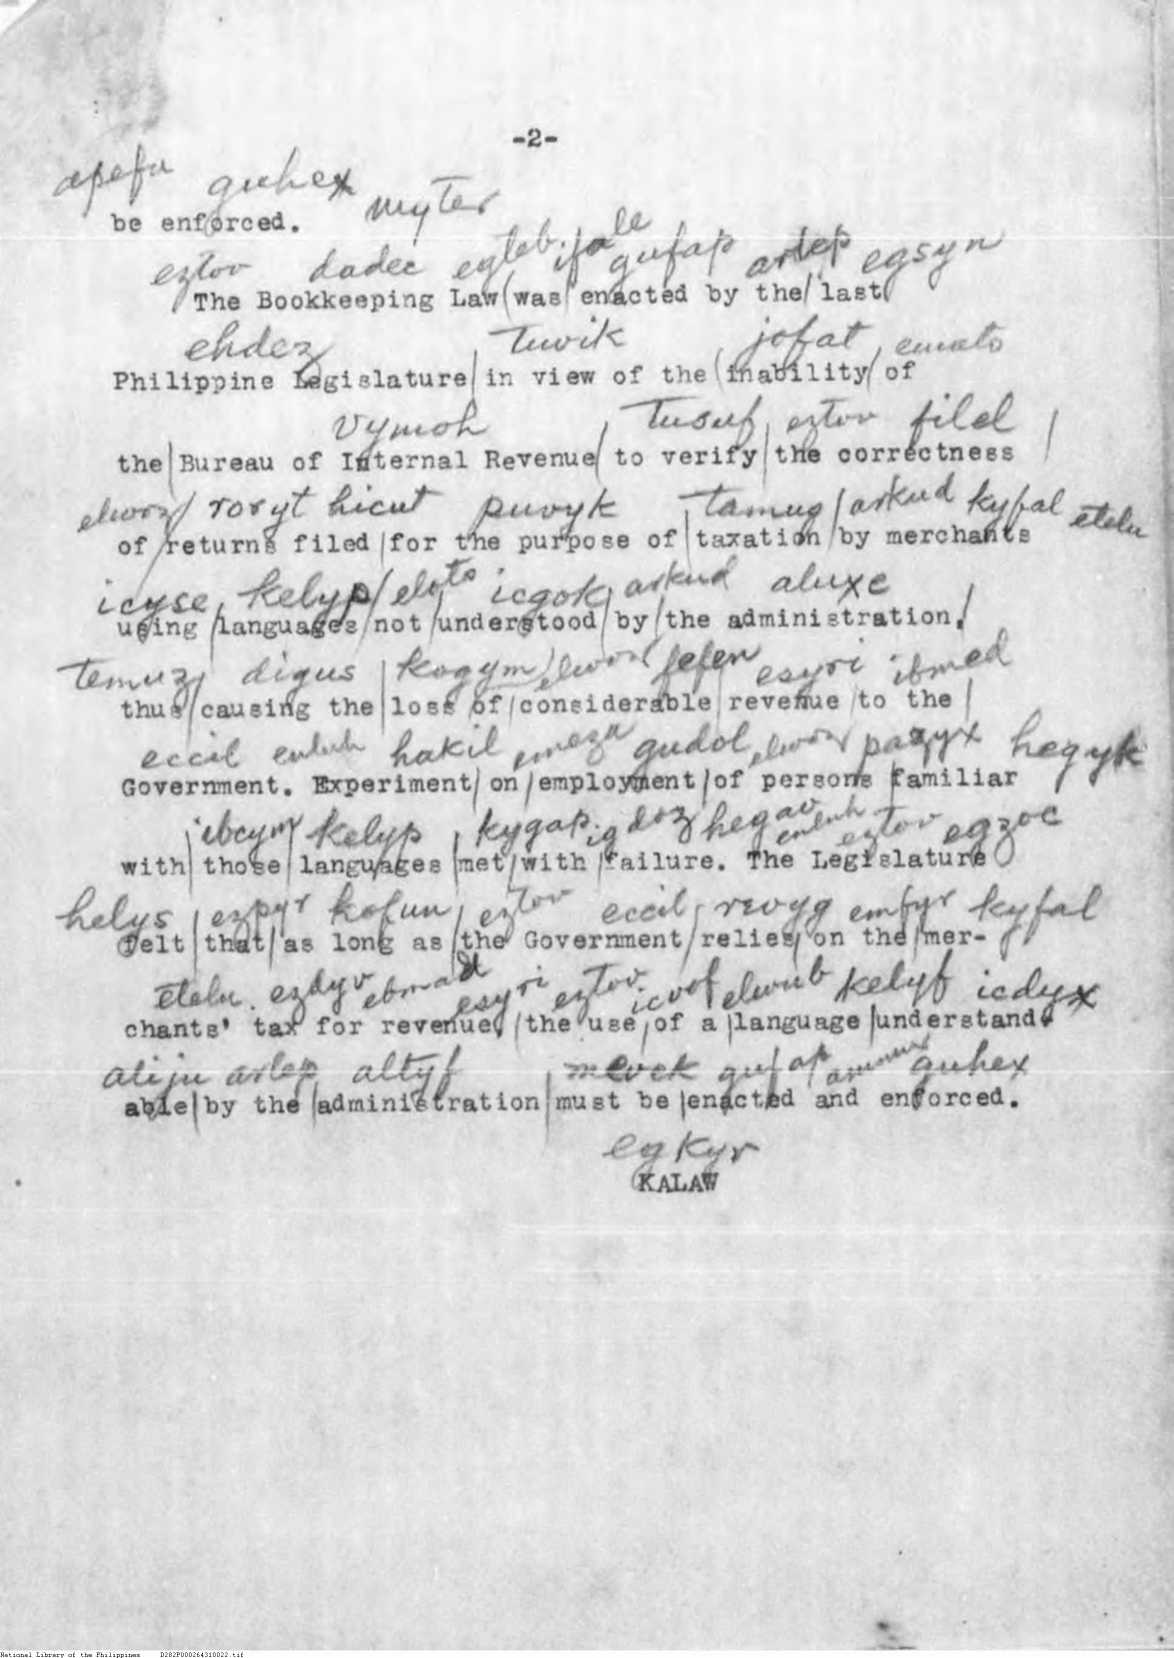 -2-
apefu guhex myter
be enforced.
eztov dadec egleb ifale gufap arlep egsyn
The Bookkeeping Law was enacted by the last
ehdez tuvik jofat emato
Philippine Legislature in view of the inability of
vymoh tusuf eztov filel
the Bureau of Internal Revenue to verify the correctness
elworz roryt hicut puvyk tamug arkud kyfal etelu
of returns filed for the purpose of taxation by merchants
icyse kelyp eloto icgok arkud aluxe
using languages not understood by the administration,
temuz digus kogym fefen esyri ibmed
thus causing the loss of considerable revenue to the
eccil enluh hakil emeza gudol pazyx hegyk
Government. Experiment on employment of persons familiar
ibcym kelyp kygap igdoz hegav enluh eztov egzoc
with those languages met with failure. The Legislature
helys ezpyr kofun eztov eccil revyg emfyr kyfal
felt that as long as the Government relies on the mer-
etelu ezdyv esyri eztov icvof elwub kelyf icdyx
chants' tax for revenue, the use of a language understand-
atiju arlep altyf gufap guhex
able by the administration must be enacted and enforced.
egkyr
KALAW
National Library of the Philippines D282P000264310022.tif